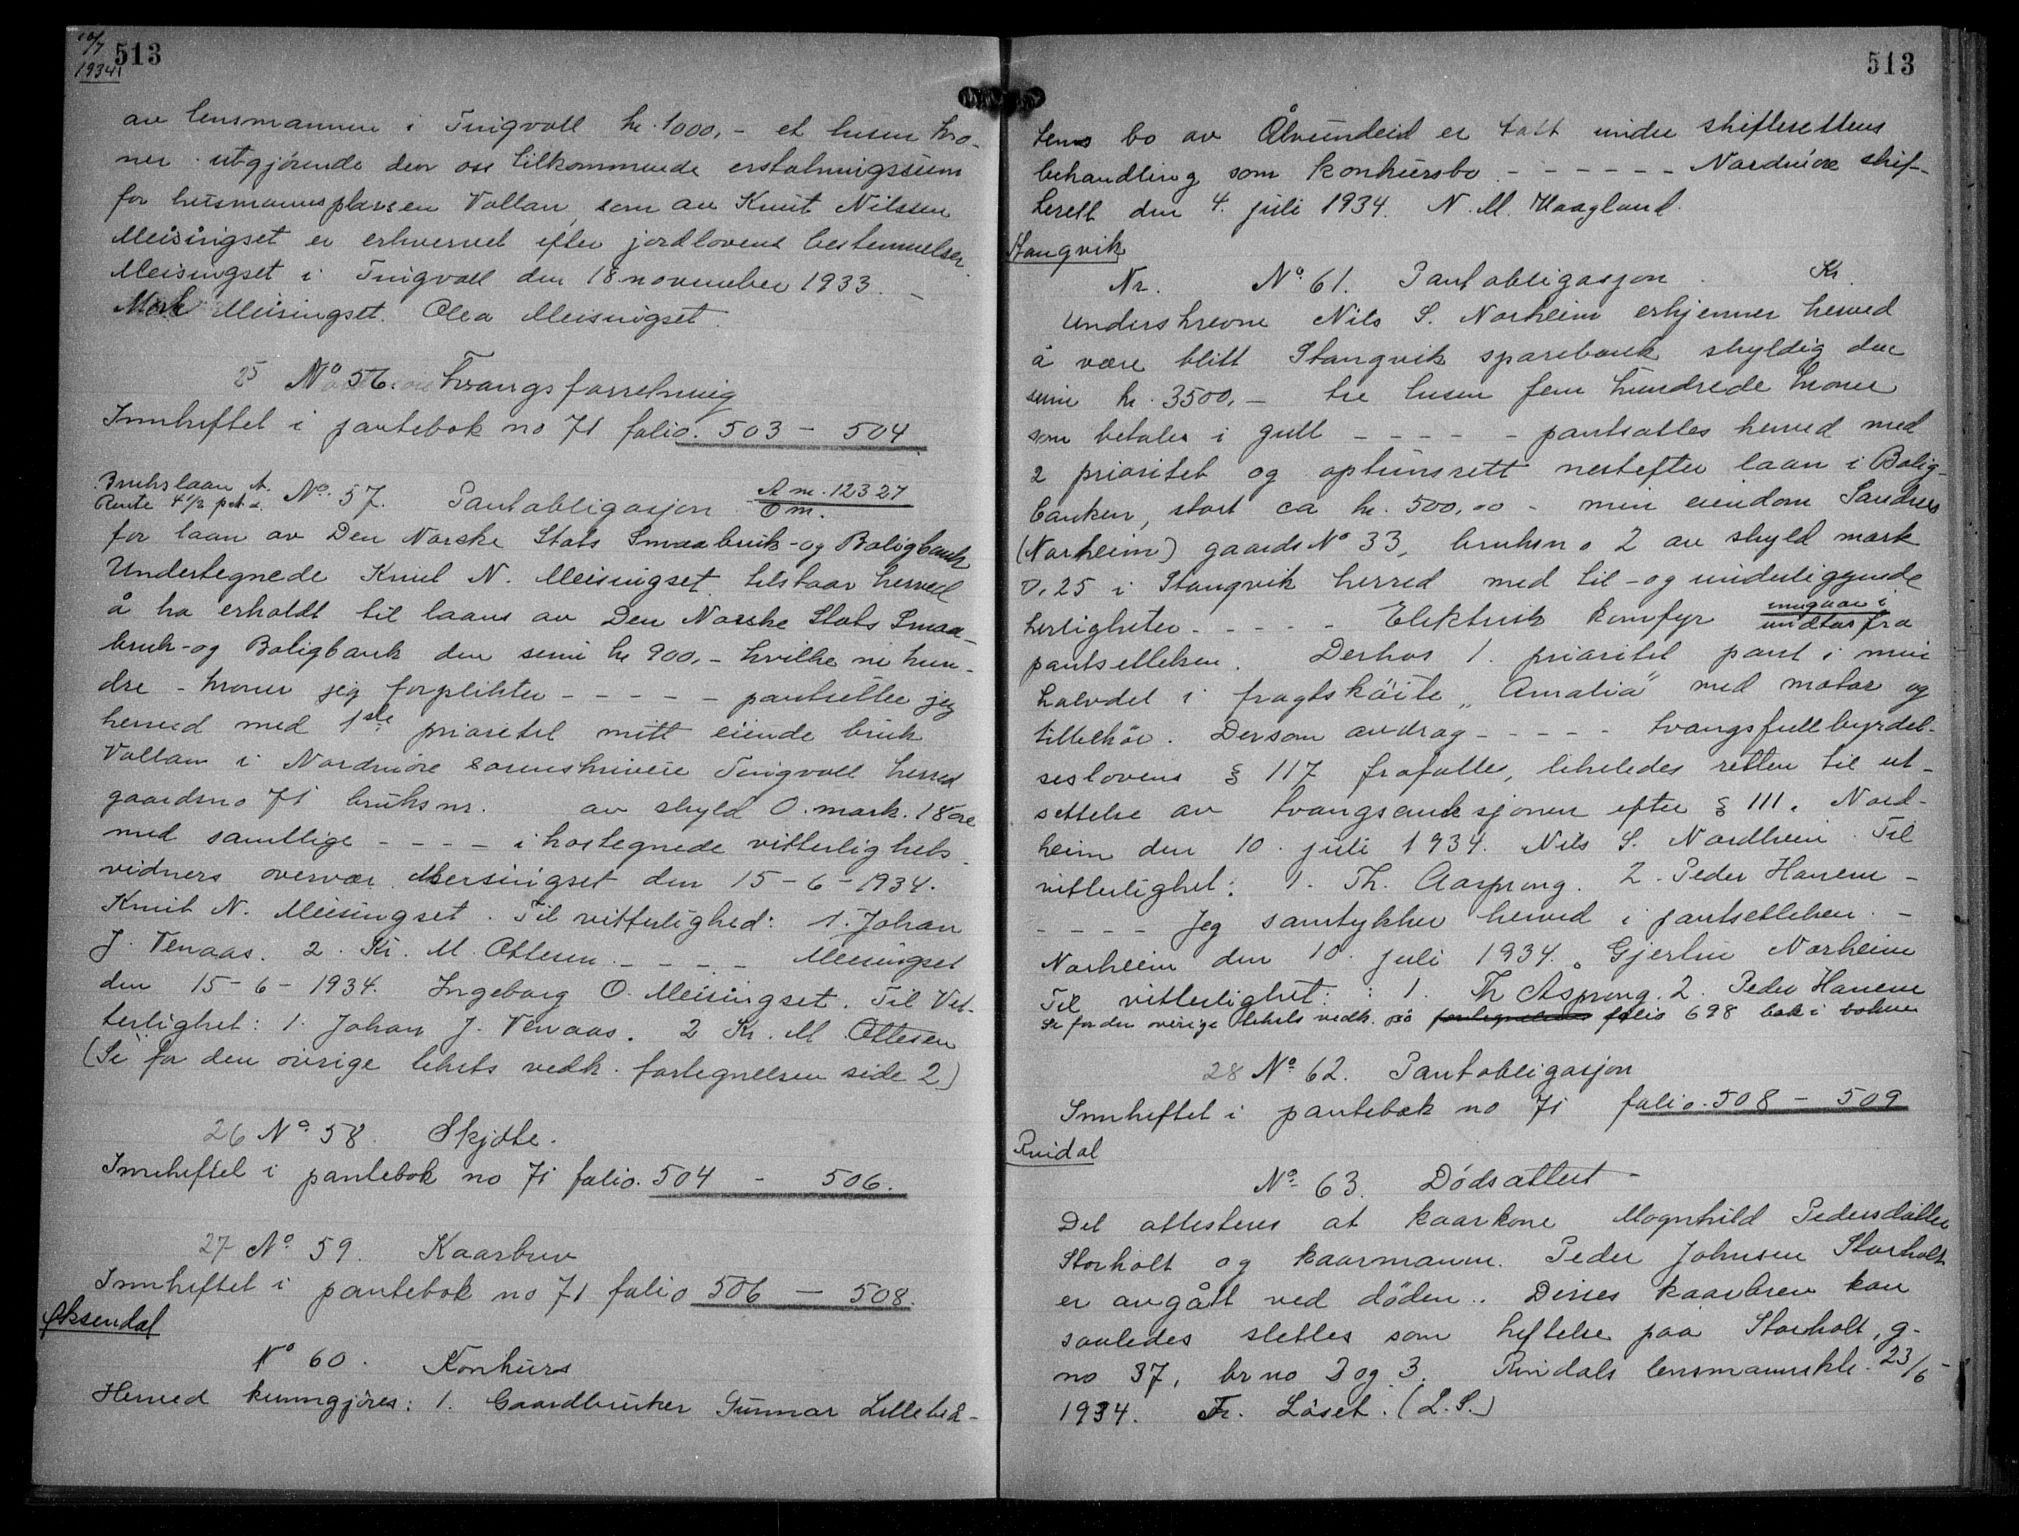 10/7
1934 513
av lensmannen i Tingvoll kr. 1000,- et tusen kro-
ner utgjørende den oss tilkommende erstatningssum
for husmannsplassen Vollan, som av Knut Nilssen
Meisingset er erhvervet efter jordlovens bestemmelser.
Meisingset i Tingvoll den 18 november 1933. -
Meisingset. Olea Meisingset.
25 No 56. Tvangsforretning
Innheftet i pantebok no 71 folio. 503 - 504
Brukslaan A.
Rente 4 1/2 pct. No. 57. Pantobligasjon A nr. 12327
for laan av Den Norske Stats Smaabruk- og Boligbank
Undertegnede Knut N. Meisingset tilstaar herved
å ha erholdt til laans av Den Norske Stats Smaa-
bruk- og Boligbank den sum kr 900,- hvilke ni hun-
dre - kroner jeg forplikter - - - - - pantsetter jeg
herved med 1ste prioritet mitt eiende bruk
Vollan i Nordmøre sorenskriveri Tingvoll herred
gaardsno 71 bruksnr. av skyld 0. mark. 18 øre
med samtlige - - - - i hostegnede vitterlighets-
vidners overvær. Meisingset den 15-6-1934.
Knut N. Meisingset. Til vitterlighed: 1. Johan
J. Tenaas. 2. Kr. M. Ottesen - - - - Meisingset
den 15-6-1934. Ingeborg O. Meisingset. Til Vit-
terlighet: 1. Johan J. Tenaas. 2 Kr. M Ottesen
(Se for den øvrige teksts vedk. fortegnelsen side 2)
26 No 58. Skjøte.
Innheftet i pantebok no 71 folio. 504 - 506.
27 No. 59. Kaarbrev
Innheftet i pantebok no 71 folio 506 - 508.
Øksendal
No 60. Konkurs
Herved kunngjøres: 1. Gaardbruker Gunnar Lillebø-
513
tens bo av Ålvundeid er tatt under skifterettens
behandling som konkursbo - - - - - - Nordmøre skif-
terett den 4. juli 1934. N. M. Haagland.
Stangvik
Nr. No 61. Pantobligasjon. Kr.
Underskrevne Nils S. Norheim erkjenner herved
å være blitt Stangvik sparebank skyldig den
sum kr. 3500,- tre tusen fem hundrede kroner
som betales i gull - - - - - pantsattes herved med
2 prioritet og optrinsrett nestefter laan i Bolig-
banken, stort ca kr. 500,00 - min eiendom Sandnes
(Norheim) gaards No 33, bruksno 2 av skyld mark
0,25 i Stangvik herred med til- og underliggende
herligheter - - - - - Elektrisk komfyr inngaar i
undtas fra
pantsettelsen. Derhos 1. prioritet pant i min
halvdel i fragtskøite „Amalia" med motor og
tilbehør. Dersom avdrag - - - - - tvangsfullbyrdel-
seslovens § 117 frafalles, likeledes retten til ut-
settelse av tvangsauksjonen efter § 111. Nord-
heim den 10. juli 1934. Nils S. Nordheim. Til
vitterlighet: 1. Th. Aasprong. 2. Peder Hanem -
- - - - Jeg samtykker herved i pantsettelsen. -
Norheim den 10. juli 1934. Gjertine Norheim
Til vitterlighet: : 1. Th Asprong. 2. Peder Hanem
Se for den øvrige teksts vedk. på fortegnelsen folio 698 bak i boken
28 No 62. Pantobligasjon
Innheftet i pantebok no 71 folio. 508 - 509
Rindal
No. 63. Dødsattest -
Det attesteres at kaarkone Magnhild Pedersdatter
Storholt og kaarmann Peder Johnsen Storholt
er avgått ved døden. Disses kaarbrev kan
saaledes slettes som heftelse paa Storholt, g-
no 37, br no 2 og 3. Rindals lensmannskt. 23/6 -
1934. Fr. Løset. (L.S.)